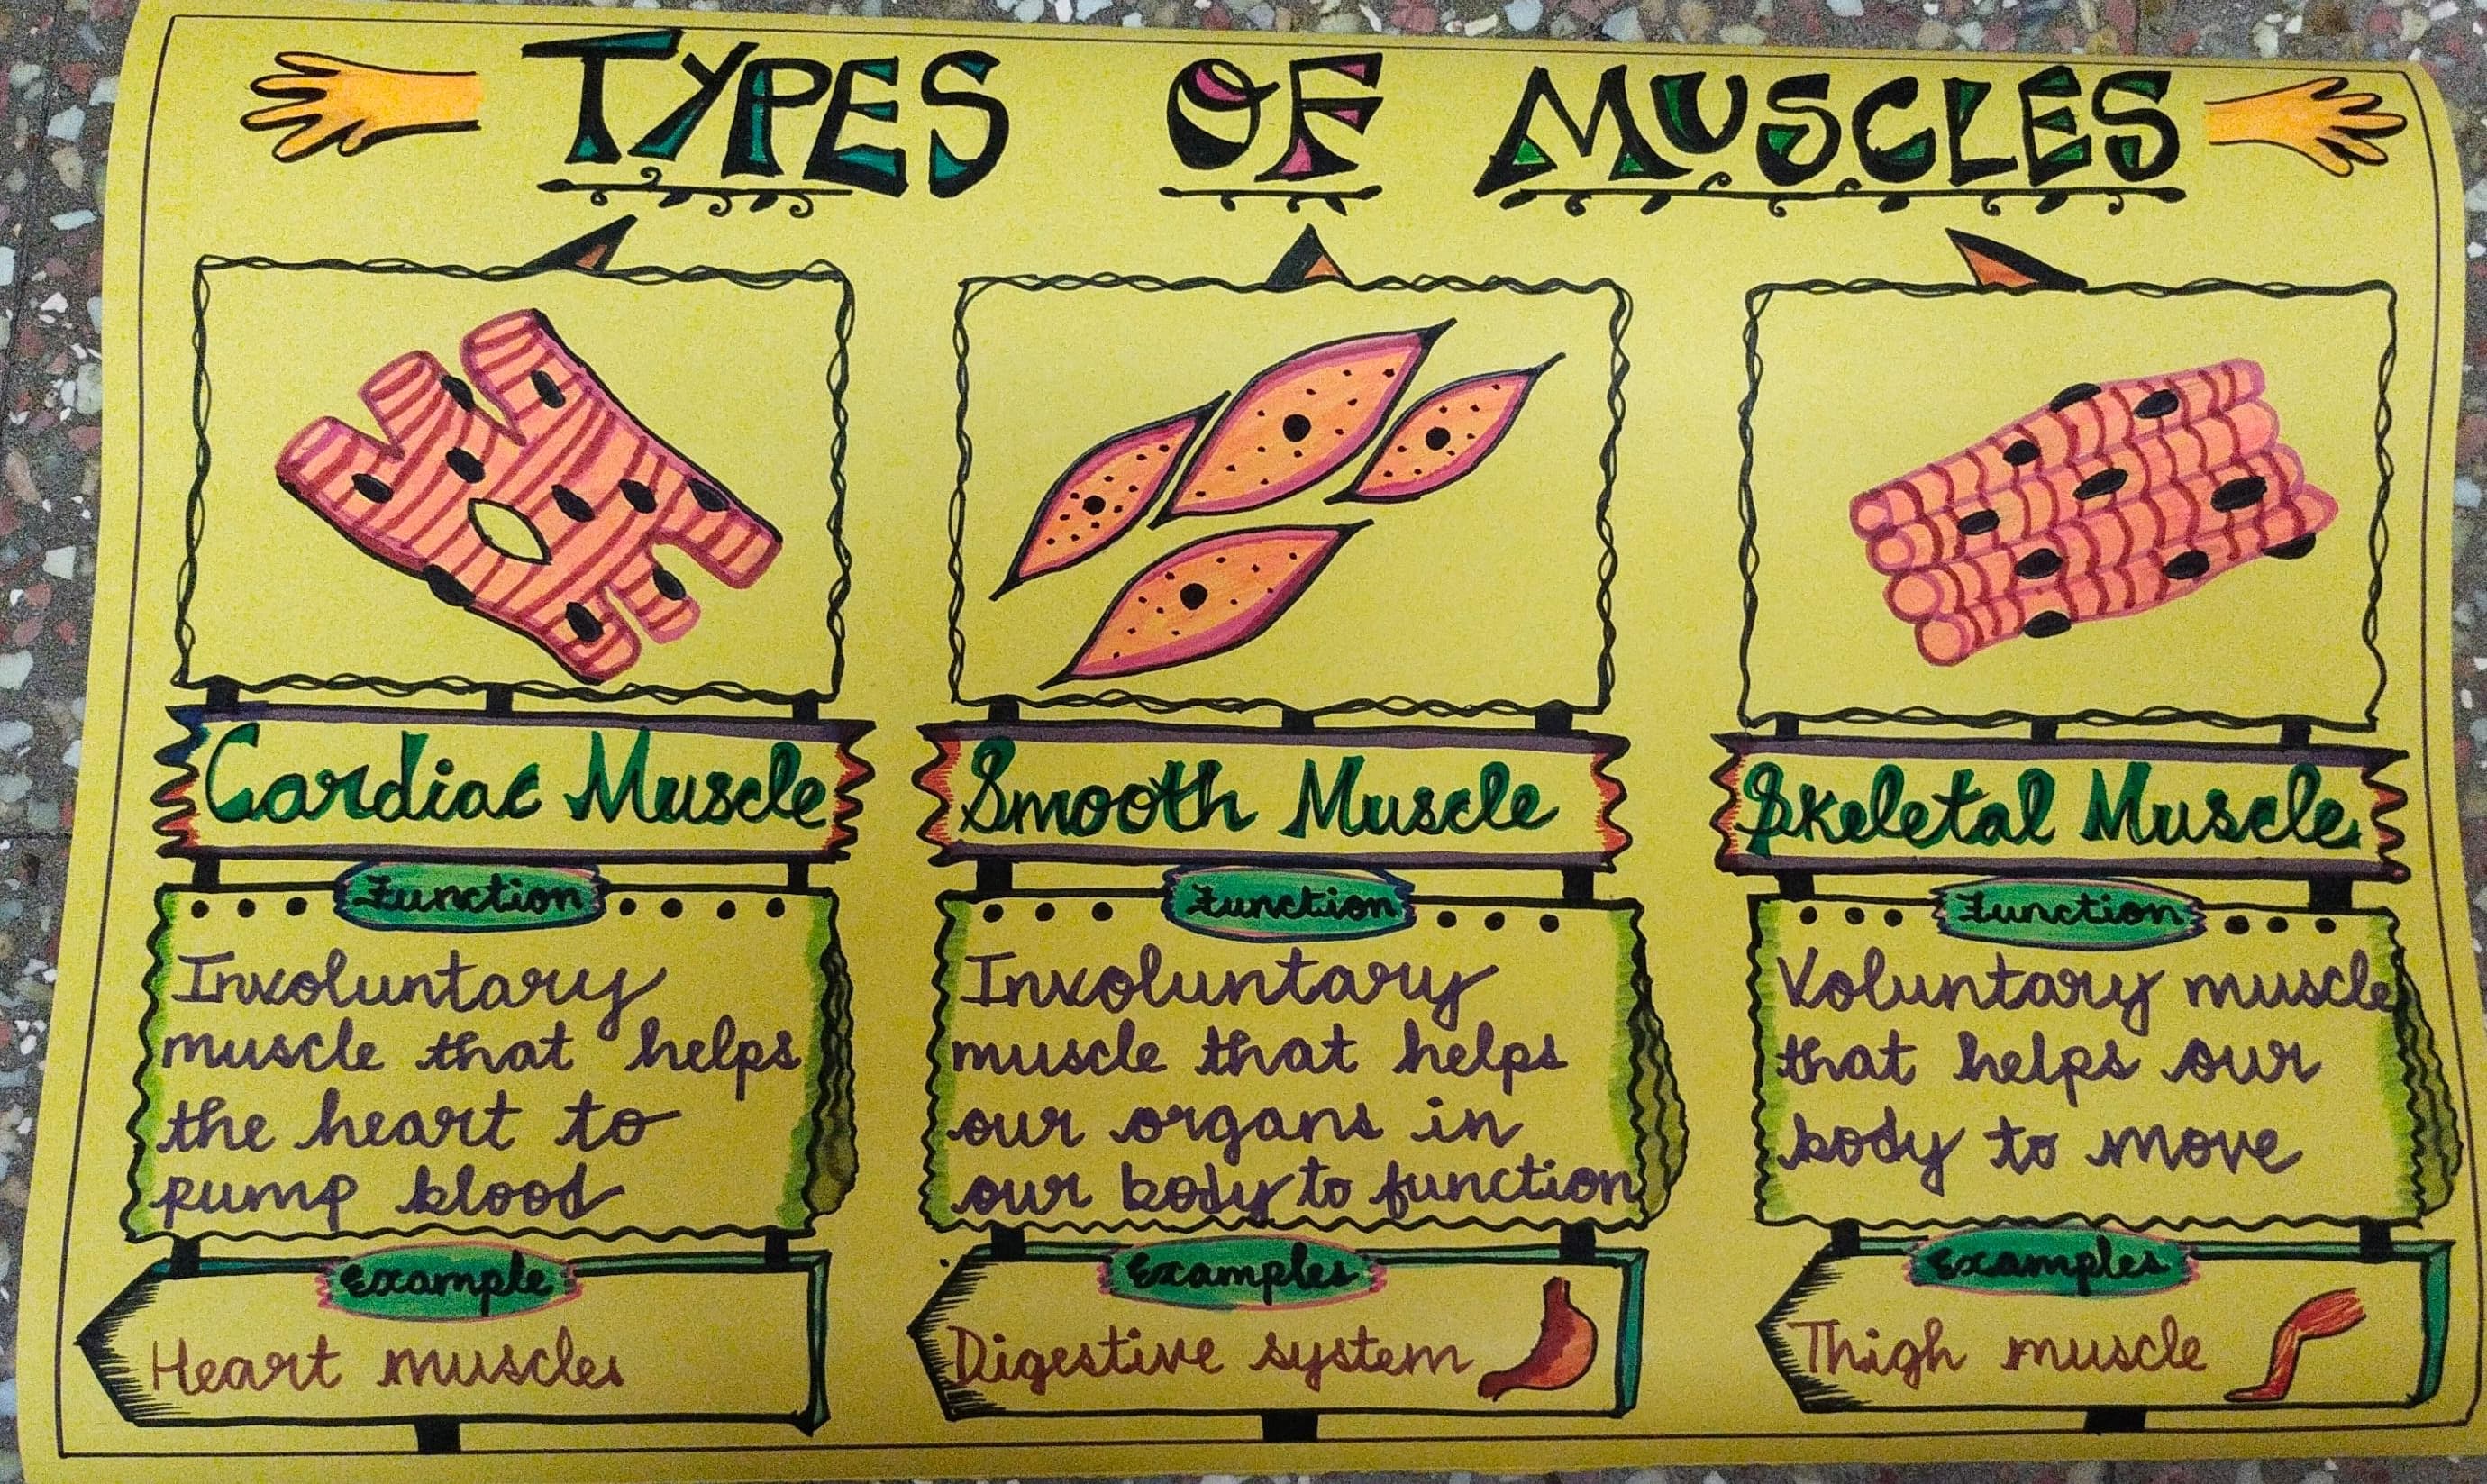 TYPES OF MUSCLES
Cardiac Muscle
Function
Involuntary
muscle that helps
the heart to
pump blood
Example
Heart muscles
Smooth Muscle
Function
Involuntary
muscle that helps
our organs in
our body to function
Examples
Digestive system
Skeletal Muscle
Function
Voluntary muscle
that helps our
body to move
Examples
Thigh muscle